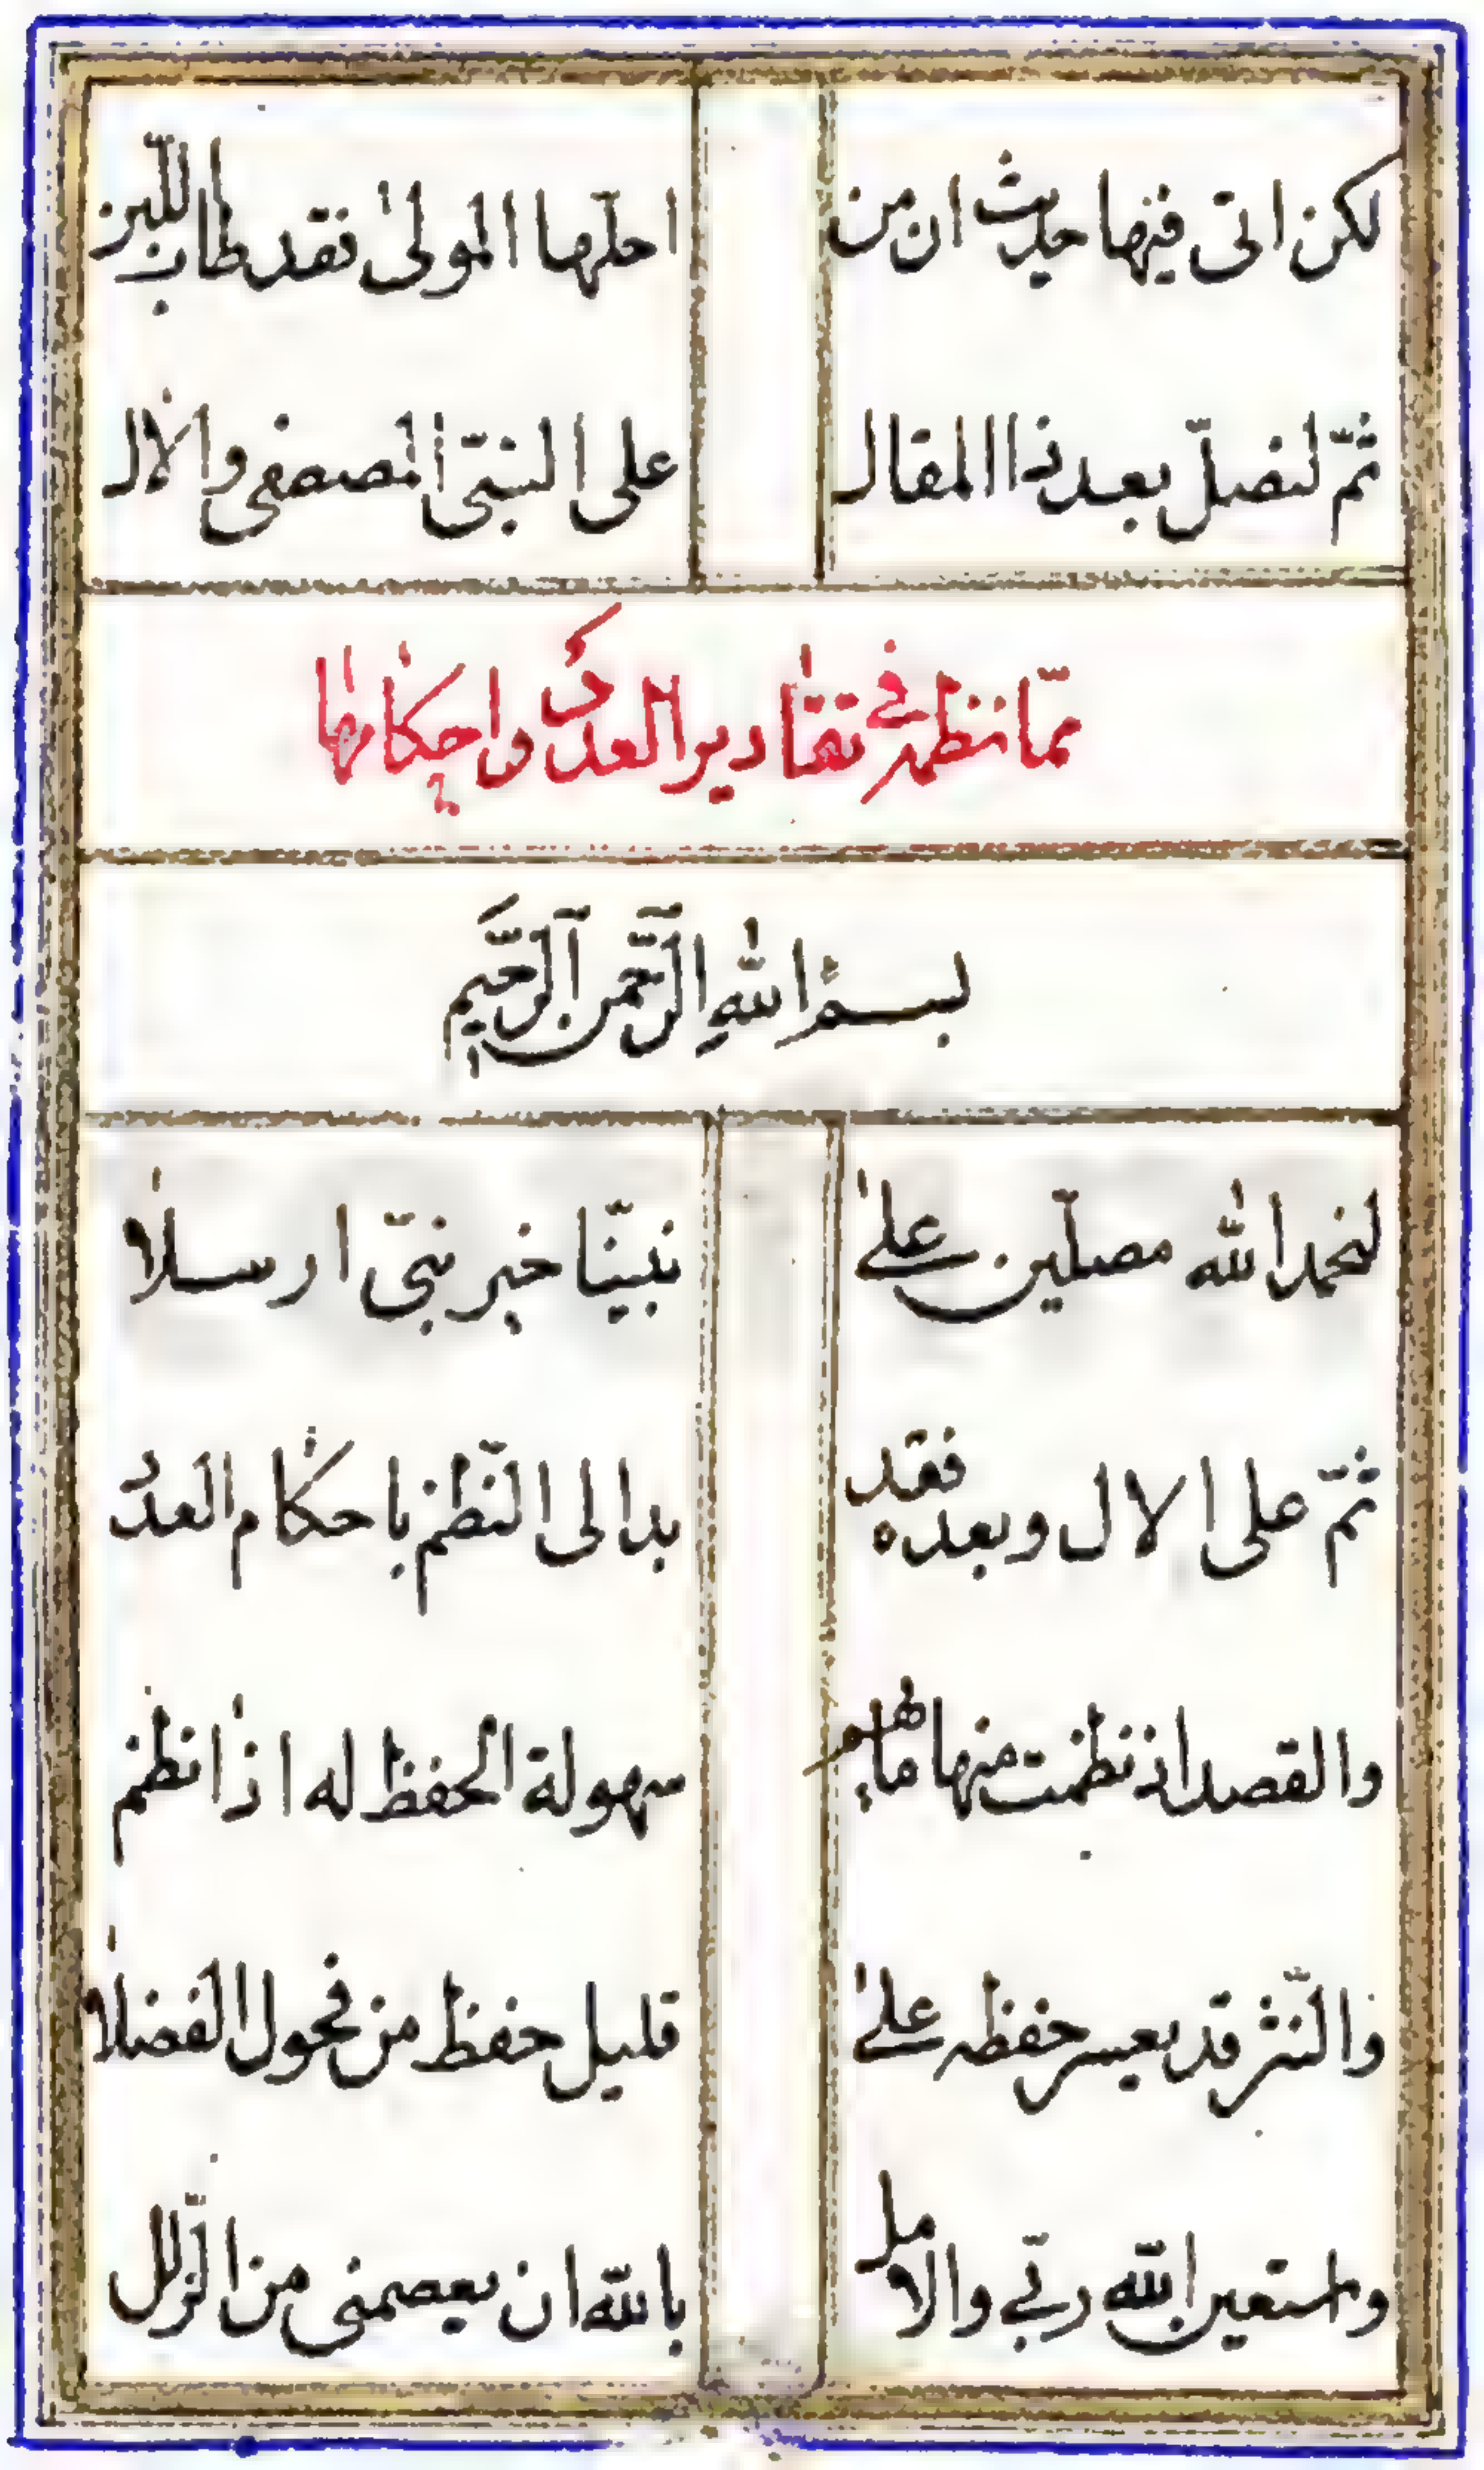 لكن اتى فيها حديث ان من احلها المولى فقد طاب
ثمّ لنصلّ بعد ذا المقال على النبىّ المصطفى والال
ممّا نظم فى تقادير العدد واحكامها
بسم الله الرّحمن الرّحيم
لنحمد الله مصلّين على نبيّنا خير نبىّ ارسلا
ثمّ على الال وبعده فقد بدا لى النّظم باحكام العدد
والقصد اذ نظمت منها ما بهم سهولة الحفظ له اذا نظم
والنّثر قد يعسر حفظه على قليل حفظ من فحول الفضلا
واستعين الله ربّى والامل بالله ان يعصمنى من الزّلل